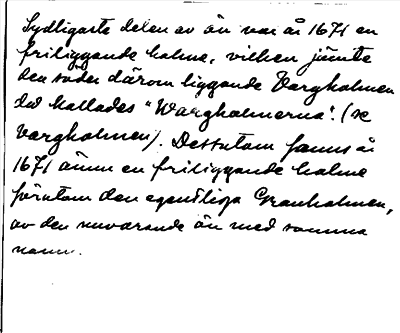 Sydligaste delen av ön var år 1671 en
friliggande holme, vilken jämte
den söder därom liggande Vargholmen
då kallades "Wargholmerna". (se
Vargholmen). Dessutom fanns år
1671 ännu en friliggande holme
förutom den egentliga Granholmen,
av den nuvarande ön med samma
namn.